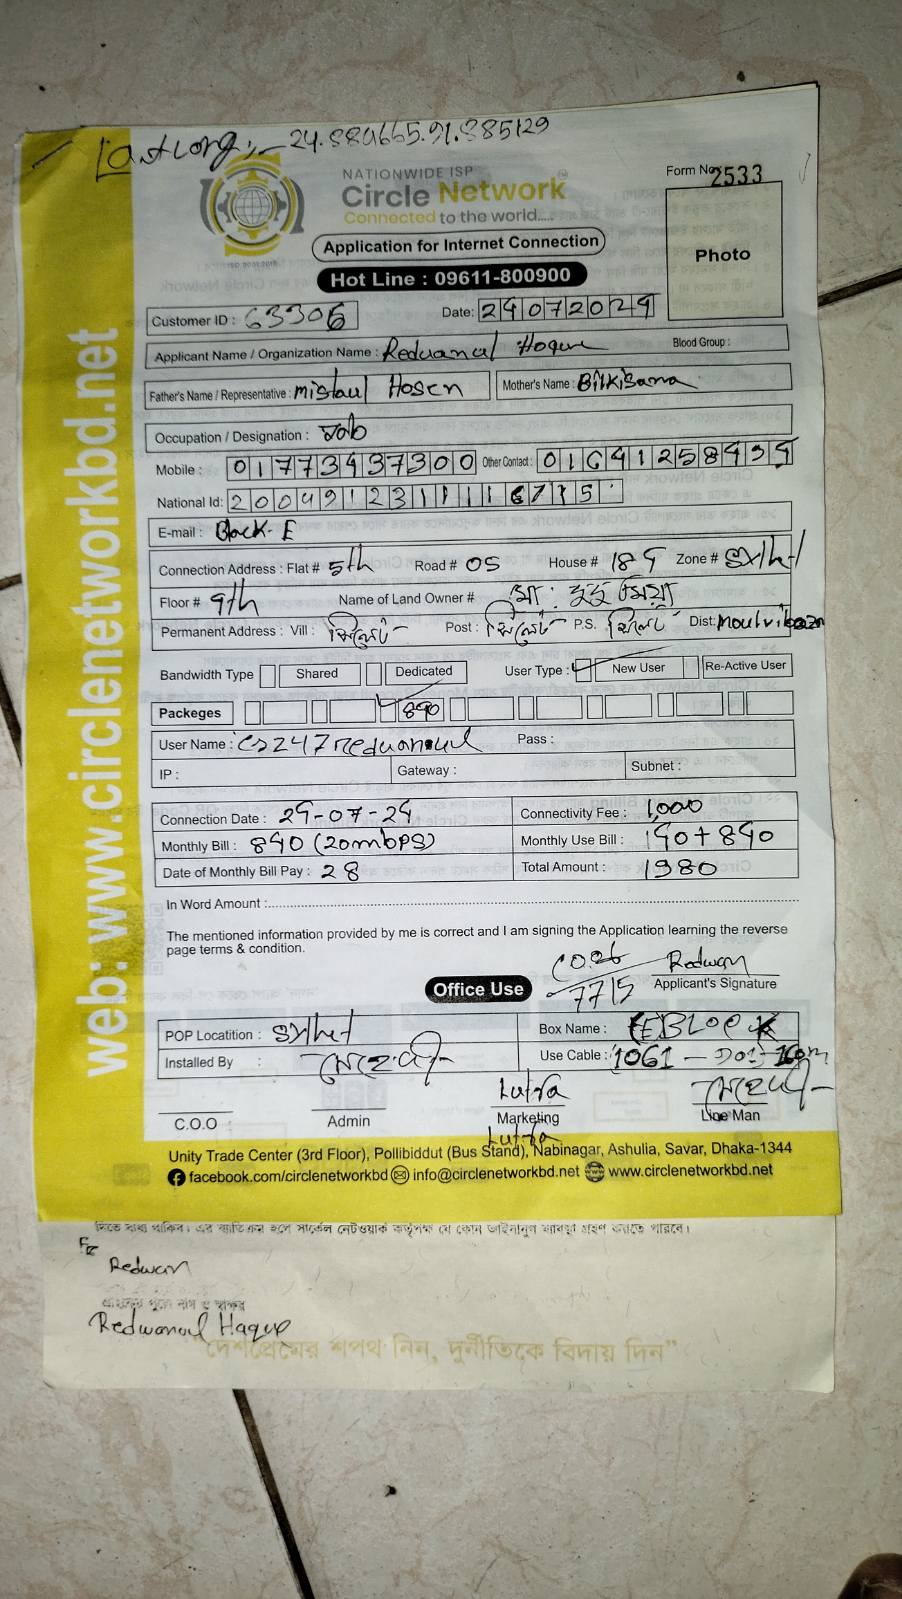 NATIONWIDE ISP
Circle Network
Connected to the world....
Form No 2533
Photo
Application for Internet Connection
Hot Line : 09611-800900
Customer ID : 63306
Date: 24072024
Applicant Name / Organization Name : Reduanul Hoque
Blood Group :
Father's Name / Representative : Mistaul Hosen
Mother's Name : Bilkisana
Occupation / Designation : Job
Mobile : 01773437300 Other Contact : 01641258434
National Id: 20049123111116715
E-mail : Block-E
Connection Address : Flat # 5th Road # 05 House # 184 Zone # Sylhet
Floor # 9th Name of Land Owner # মো: মিয়া
Permanent Address : Vill : সিলেট Post : সিলেট P.S. সিলেট Dist: Moulvibazar
Bandwidth Type Shared Dedicated User Type : New User Re-Active User
Packeges 840
User Name : cs247reduanoul Pass :
IP : Gateway : Subnet :
Connection Date : 24-07-24 Connectivity Fee : 1,000
Monthly Bill : 840 (20mbps) Monthly Use Bill : 140+840
Date of Monthly Bill Pay : 28 Total Amount : 1980
In Word Amount :
The mentioned information provided by me is correct and I am signing the Application learning the reverse
page terms & condition.
7715
Redwan
Applicant's Signature
Office Use
POP Locatition : Sylhet Box Name : EBLOCK
Installed By : মেহেদী Use Cable : 1061
C.O.O
Admin
Lutfa
Marketing
Lutfa
মেহেদী
Line Man
Unity Trade Center (3rd Floor), Pollibiddut (Bus Stand), Nabinagar, Ashulia, Savar, Dhaka-1344
facebook.com/circlenetworkbd info@circlenetworkbd.net www.circlenetworkbd.net
web: www.circlenetworkbd.net
দিতে বাধ্য থাকিব। এর ব্যতিক্রম হলে সার্কেল নেটওয়ার্ক কর্তৃপক্ষ যে কোন আইনানুগ ব্যবস্থা গ্রহণ করতে পারবে।
Redwan
Redwanoul Haque
"দেশপ্রেমের শপথ নিন, দুর্নীতিকে বিদায় দিন"